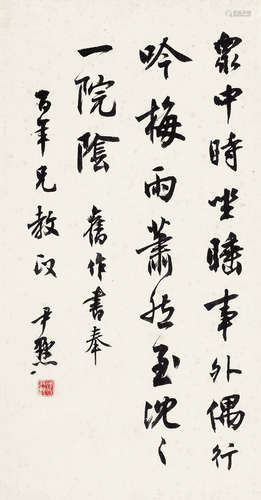 眾中時坐睡事外偶行
吟梅雨蕭然至沈〻
一院陰 舊作書奉
百年兄教正 尹默